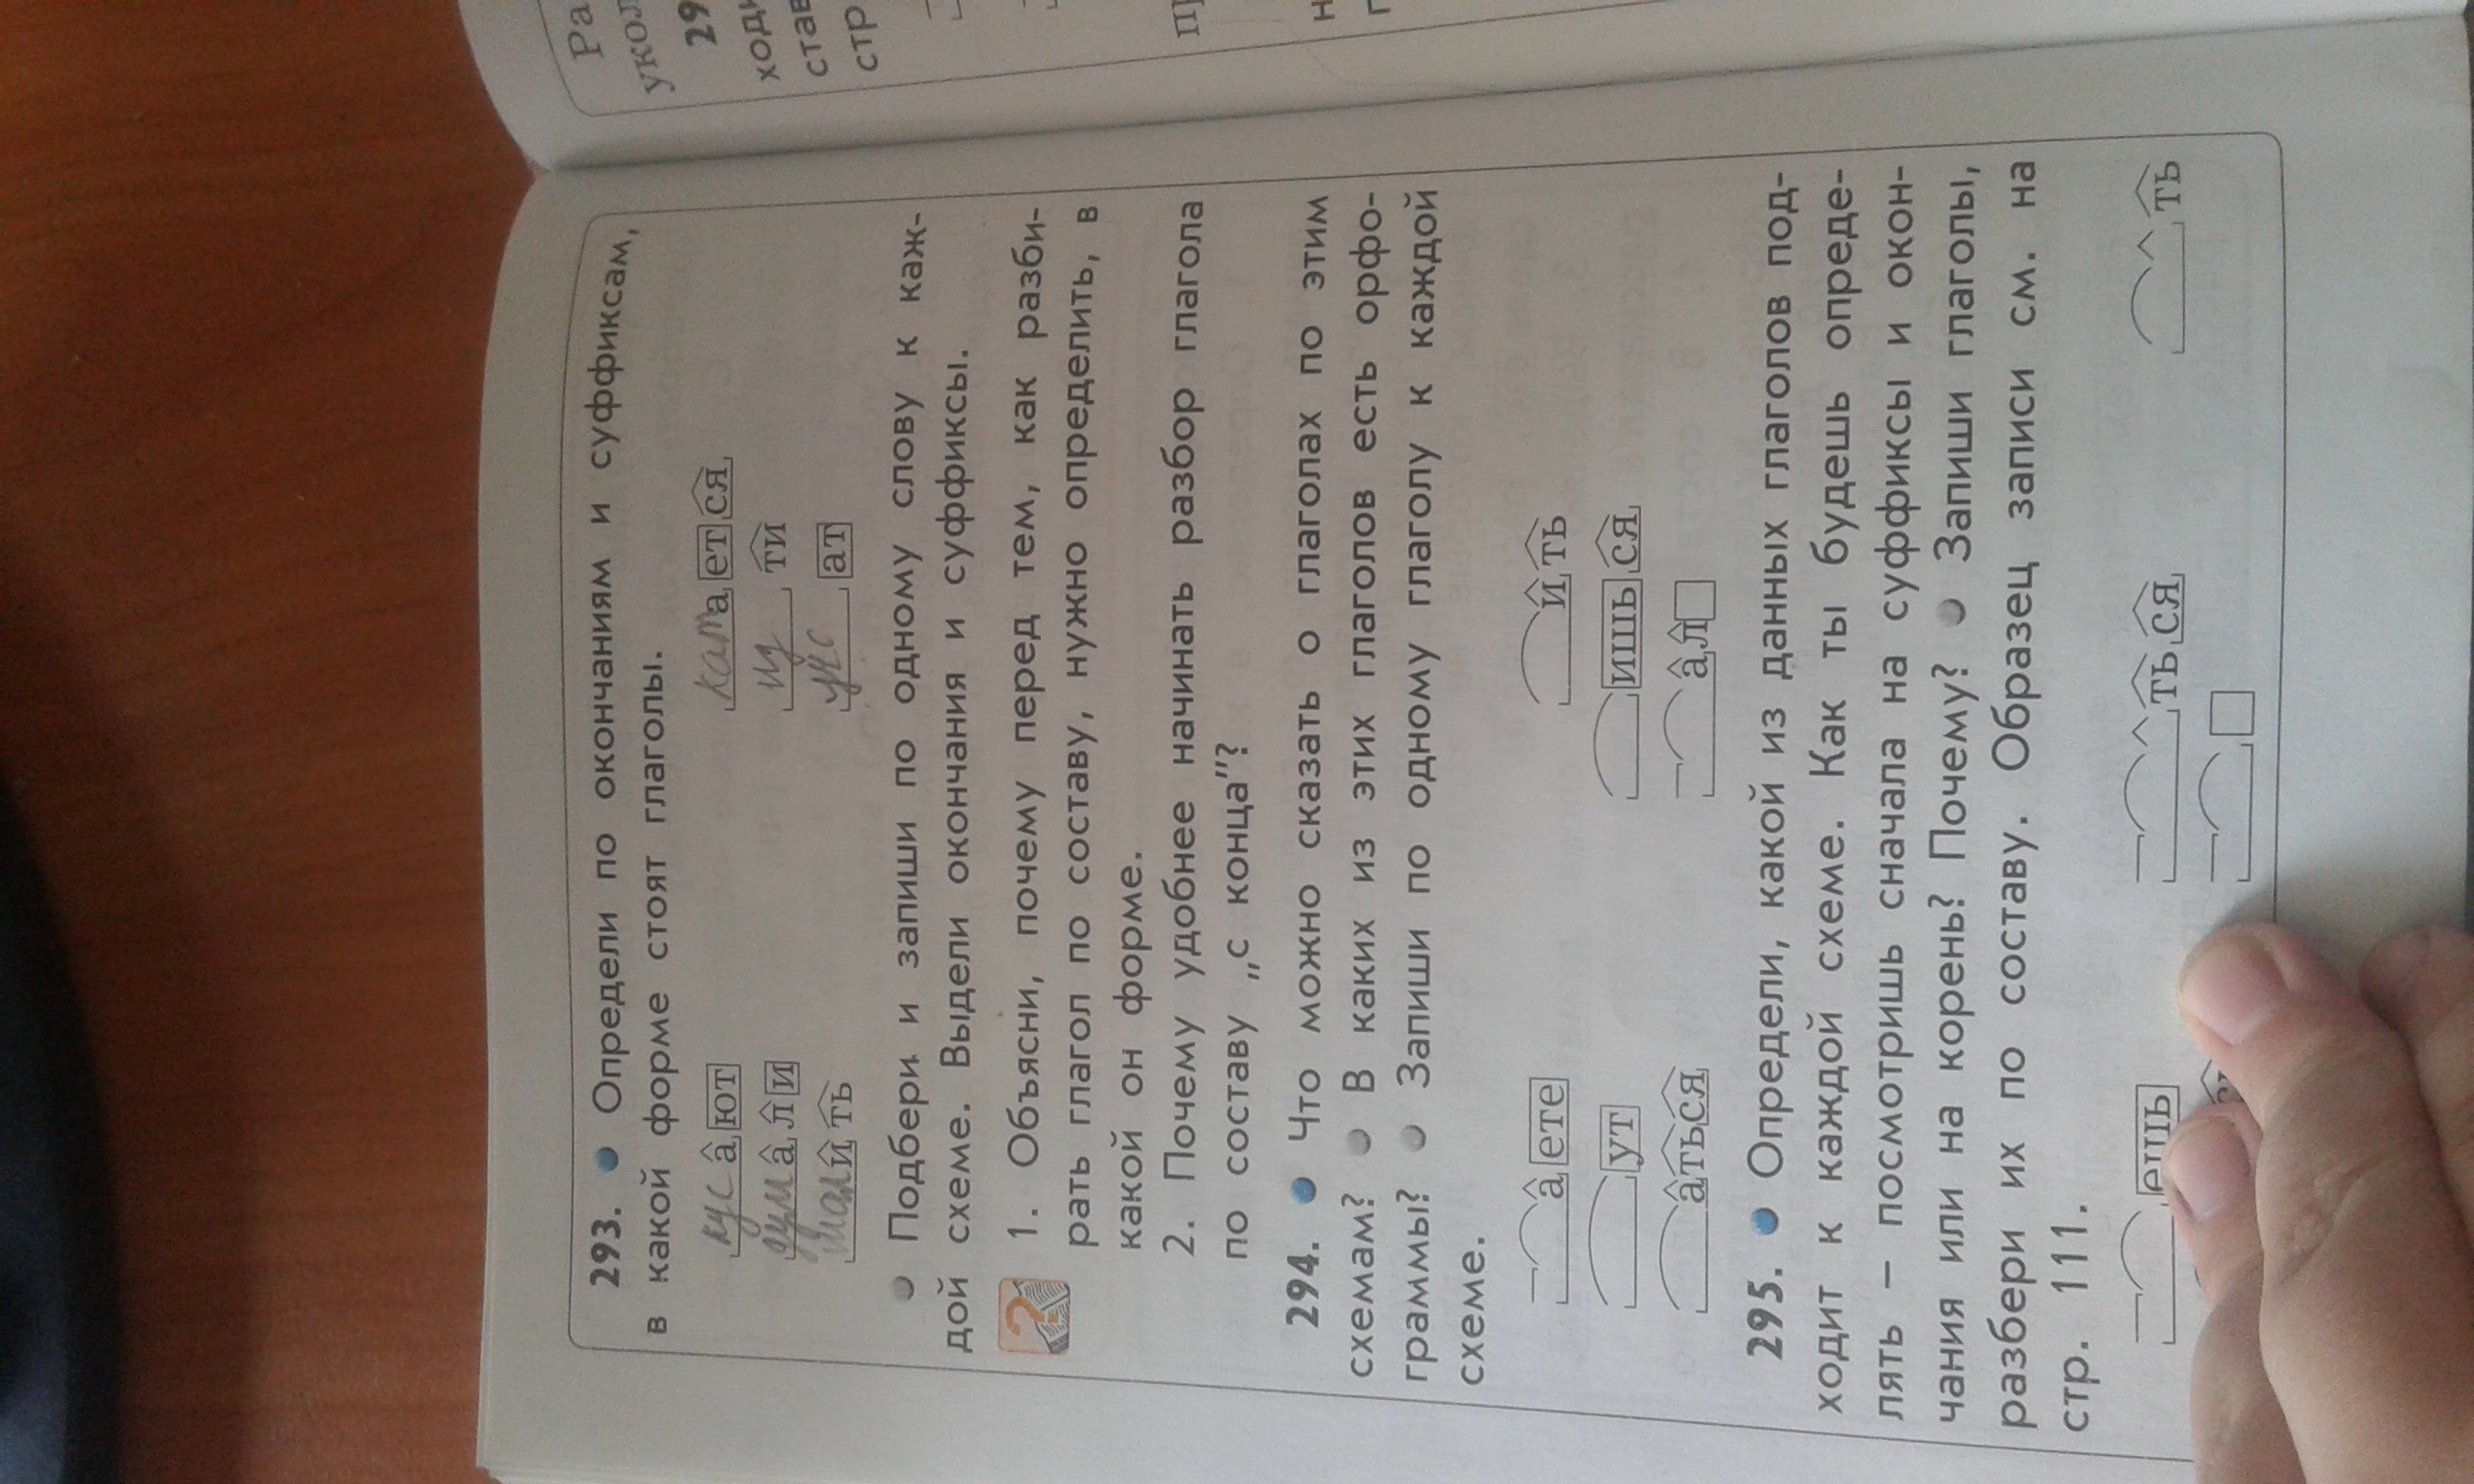 293. ● Определи по окончаниям и суффиксам,
в какой форме стоят глаголы.
кус а ют кат а ет ся
дума л и ти
ить ус ат
● Подбери и запиши по одному слову к каж-
дой схеме. Выдели окончания и суффиксы.
? 1. Объясни, почему перед тем, как разби-
рать глагол по составу, нужно определить, в
какой он форме.
2. Почему удобнее начинать разбор глагола
по составу „с конца"?
294. ● Что можно сказать о глаголах по этим
схемам? ● В каких из этих глаголов есть орфо-
граммы? ● Запиши по одному глаголу к каждой
схеме.
а ете и ть
ут ишь ся
а ть ся а л
295. ● Определи, какой из данных глаголов под-
ходит к каждой схеме. Как ты будешь опреде-
лять – посмотришь сначала на суффиксы и окон-
чания или на корень? Почему? ● Запиши глаголы,
разбери их по составу. Образец записи см. на
стр. 111.
ешь ть ся ть
Ра
укол
29
ходи
став
стр